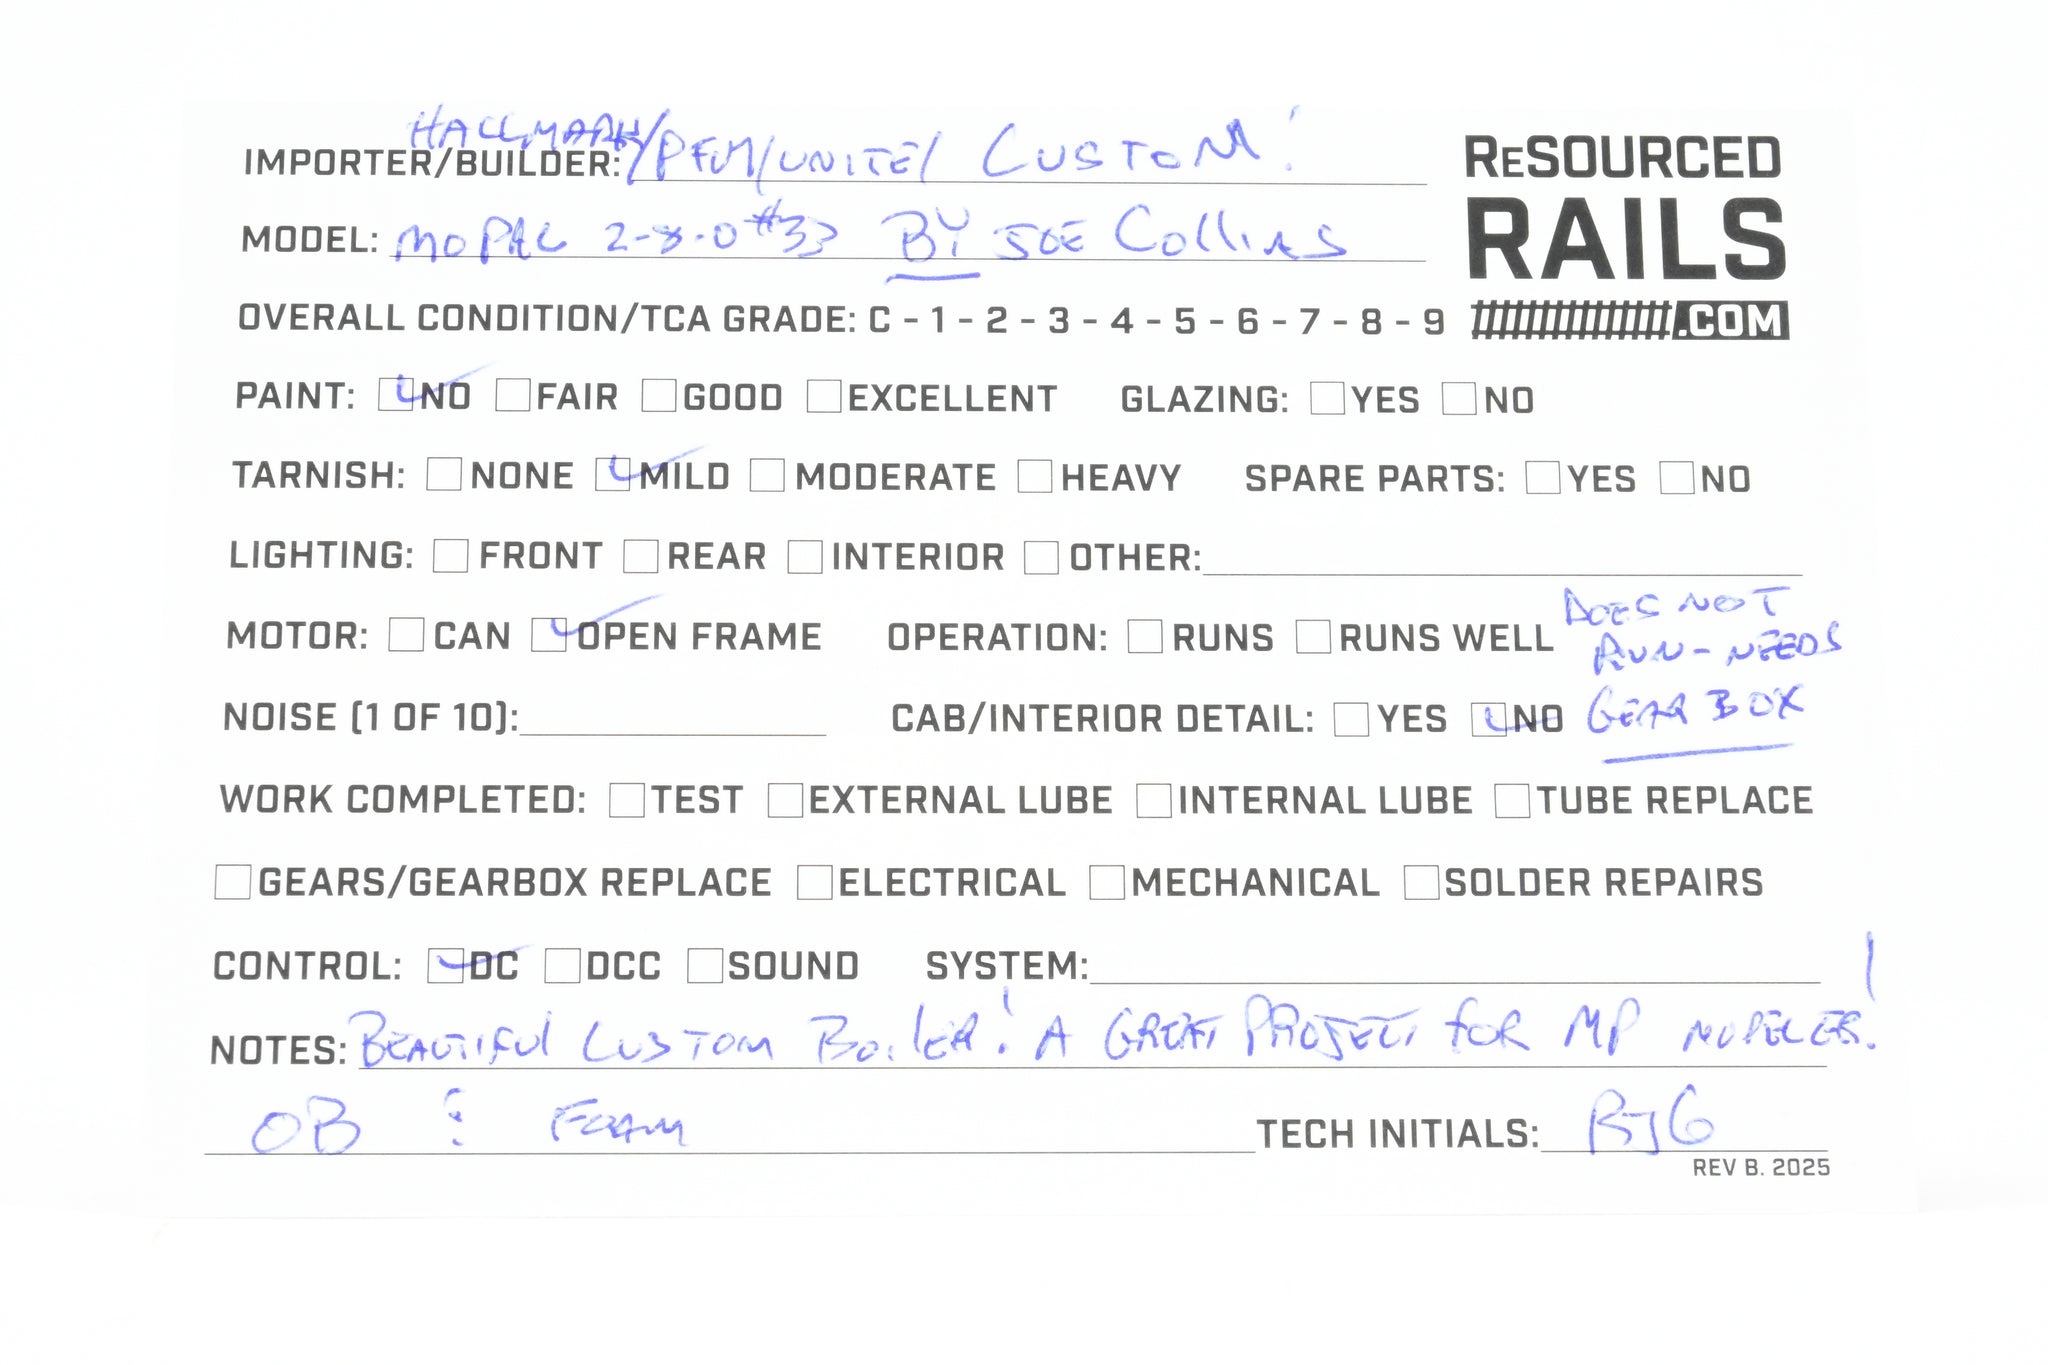 HALLMARK/PFM/UNITE/ CUSTOM!
IMPORTER/BUILDER:
ReSOURCED
RAILS
.COM
MODEL: MOPAC 2-8-0 #33 BY JOE COLLINS
OVERALL CONDITION/TCA GRADE: C - 1 - 2 - 3 - 4 - 5 - 6 - 7 - 8 - 9
PAINT: NO FAIR GOOD EXCELLENT GLAZING: YES NO
TARNISH: NONE MILD MODERATE HEAVY SPARE PARTS: YES NO
LIGHTING: FRONT REAR INTERIOR OTHER:
MOTOR: CAN OPEN FRAME OPERATION: RUNS RUNS WELL
DOES NOT
RUN-NEEDS
GEAR BOX
NOISE (1 OF 10): CAB/INTERIOR DETAIL: YES NO
WORK COMPLETED: TEST EXTERNAL LUBE INTERNAL LUBE TUBE REPLACE
GEARS/GEARBOX REPLACE ELECTRICAL MECHANICAL SOLDER REPAIRS
CONTROL: DC DCC SOUND SYSTEM:
NOTES: BEAUTIFUL CUSTOM BOILER! A GREAT PROJECT FOR MP MODELER!
OB & FOAM TECH INITIALS: RJG
REV B. 2025